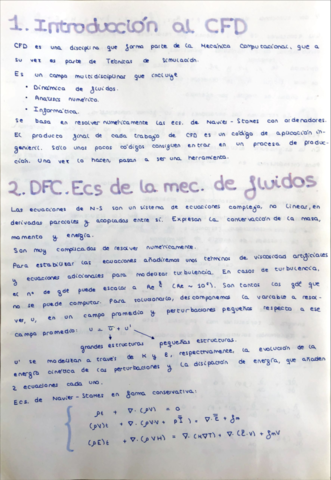 1. Introducción al CFD
CFD es una disciplina que forma parte de la Mecánica Computacional, que a
su vez es parte de Técnicas de Simulación.
Es un campo multidisciplinar que incluye
• Dinámica de fluidos.
• Análisis numérico.
• Informática.
Se basa en resolver numéricamente las ecs. de Navier-Stokes con ordenadores.
El producto final de cada trabajo de CFD es un código de aplicación in-
genieril. Solo unos pocos códigos consiguen entrar en un proceso de produc-
ción. Una vez lo hacen pasan a ser una herramienta.
2. DFC. Ecs de la mec. de fluidos
Las ecuaciones de N-S son un sistema de ecuaciones complejo, no linear, en
derivadas parciales y acopladas entre sí. Expresan la conservación de la masa,
momento y energía.
Son muy complicadas de resolver numéricamente.
Para estabilizar las ecuaciones añadiremos unos términos de viscosidad artificiales
y ecuaciones adicionales para modelizar turbulencia. En casos de turbulencia,
el nº de gdl puede escalar a Re (Re ~ 10⁶). Son tantos los gdl que
no se puede computar. Para solucionarlo, descomponemos la variable a resol-
ver, u, en un campo promedio y perturbaciones pequeñas respecto a ese
campo promedio: u = ū + u'
grandes estructuras pequeñas estructuras
u' se modelizan a través de K y ξ, respectivamente, la evolución de la
energía cinética de las perturbaciones y la disipación de energía, que añaden
2 ecuaciones cada uno.
Ecs. de Navier-Stokes en forma conservativa:
ρt + ∇·(ρV) = 0
(ρV)t + ∇·(ρVV +
(ρE)t + ∇·(ρVH) = ∇·(K∇T) + ∇·